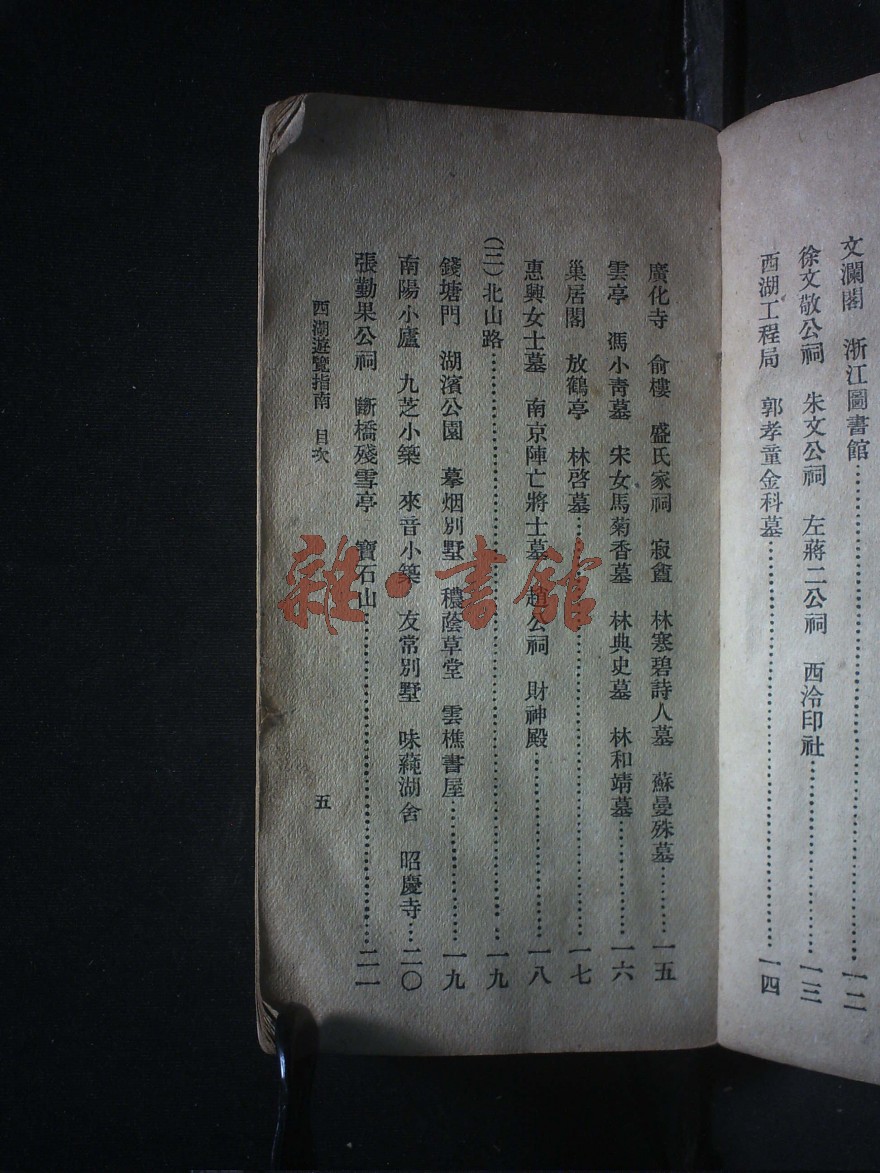 文瀾閣 浙江圖書館……一二
徐文敬公祠 朱文公祠 左蔣二公祠 西泠印社……一三
西湖工程局 郭孝童金科墓……一四
廣化寺 俞樓 盛氏家祠 寂盦 林寒碧詩人墓 蘇曼殊墓……一五
雲亭 馮小靑墓 宋女馬菊香墓 林典史墓 林和靖墓……一六
巢居閣 放鶴亭 林啓墓……一七
惠興女士墓 南京陣亡將士墓 趙公祠 財神殿……一八
(三)北山路……一九
錢塘門 湖濱公園 摹烟別墅 穠蔭草堂 雲樵書屋……一九
南陽小廬 九芝小築 來音小築 友常別墅 味蒓湖舍 昭慶寺…二〇
張勤果公祠 斷橋殘雪亭 寶石山……二一
西湖遊覽指南 目次 五
雜·書館